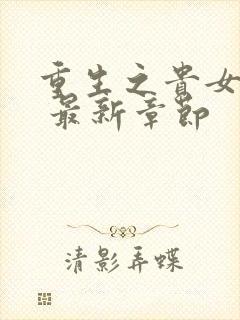 重生之貴女
最新章節
清影弄蝶